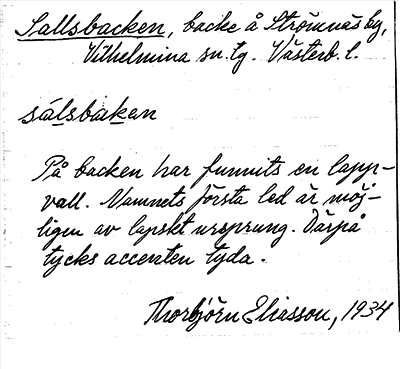 Sallsbacken, backe å Strömnäs by,
Vilhelmina sn. tg. Västerb. l.
sálsbakan
På backen har funnits en lapp-
vall. Namnets första led är möj-
ligen av lapskt ursprung. Därpå
tycks accenten tyda.
Thorbjörn Eliasson, 1934